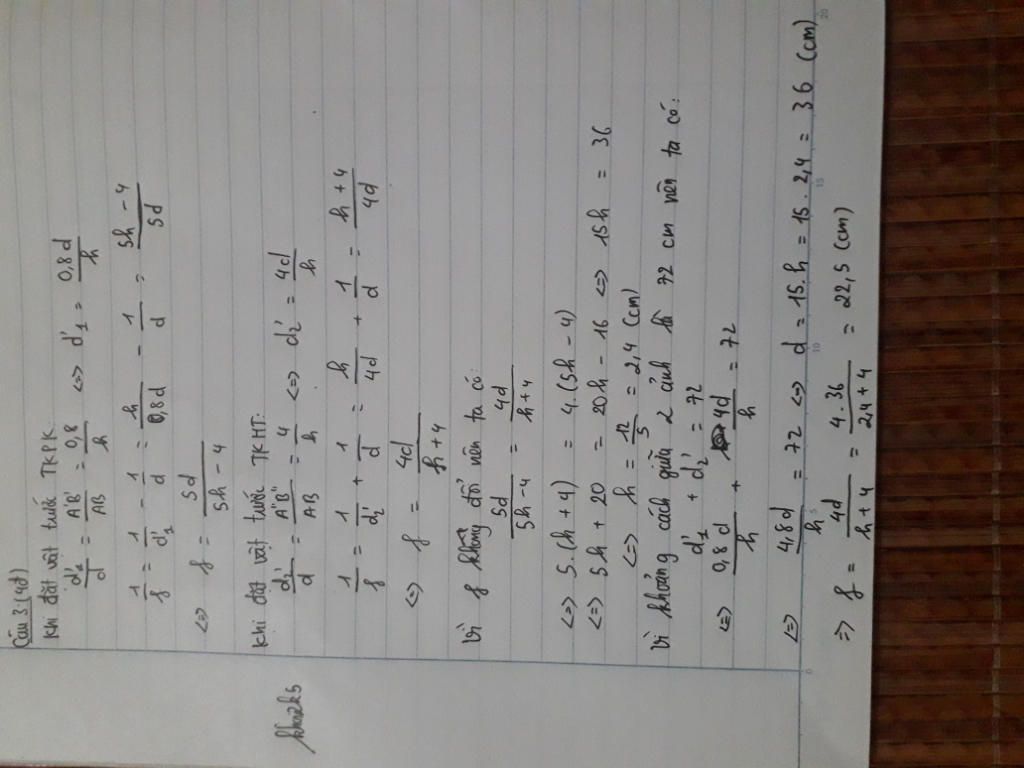 Câu 3: (4đ)
Khi đặt vật trước TKPK
d'1/d = A'B'/AB = 0,8/h <=> d'1 = 0,8d/h
1/f = 1/d'1 - 1/d = h/0,8d - 1/d = 5h - 4/5d
<=> f = 5d/5h - 4
Khi đặt vật trước TKHT:
d2'/d = A"B"/AB = 4/h <=> d2' = 4d/h
1/f = 1/d2' + 1/d = h/4d + 1/d = h + 4/4d
<=> f = 4d/h + 4
Vì f không đổi nên ta có:
5d/5h - 4 = 4d/h + 4
<=> 5.(h + 4) = 4.(5h - 4)
<=> 5h + 20 = 20h - 16 <=> 15h = 36
<=> h = 12/5 = 2,4 (cm)
Vì khoảng cách giữa 2 ảnh là 72 cm nên ta có:
d'1 + d2' = 72
<=> 0,8d/h + 4d/h = 72
<=> 4,8d/h = 72 <=> d = 15.h = 15.2,4 = 36 (cm)
=> f = 4d/h + 4 = 4.36/2,4 + 4 = 22,5 (cm)
khoazk5
0 5 10 15 20